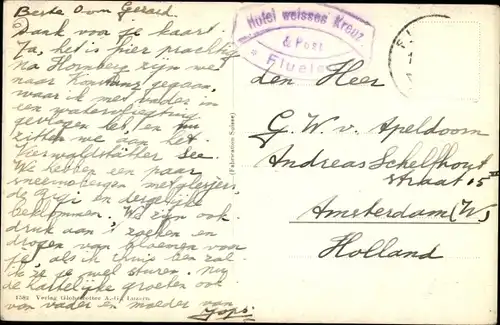 Beste Oom Gerard
Dank voor je kaart.
Ja, het is hier prachtig
Na Hornberg zijn we
naar Konstanz gegaan,
waar ik met vader in
een watervliegtuig
gevlogen heb, en nu
zitten we aan het
Vierwaldstätter See.
We hebben een paar
sneeuwbergen met gletsjers
de Rigi en dergelijke
beklommen. We zijn ook
druk aan 't zoeken en
drogen van bloemen voor
je, als ik thuis ben zal
ik ze je wel sturen. Nog
de hartelijke groeten ook
van vader en moeder van
Japs.
1582 Verlag Globetrotter A.-G., Luzern.
(Fabrication Suisse)
Hotel weisses Kreuz
& Post
Fluelen
den Heer
G. W. v. Apeldoorn
Andreas Schelfhout
straat 15 III
Amsterdam (W.)
Holland